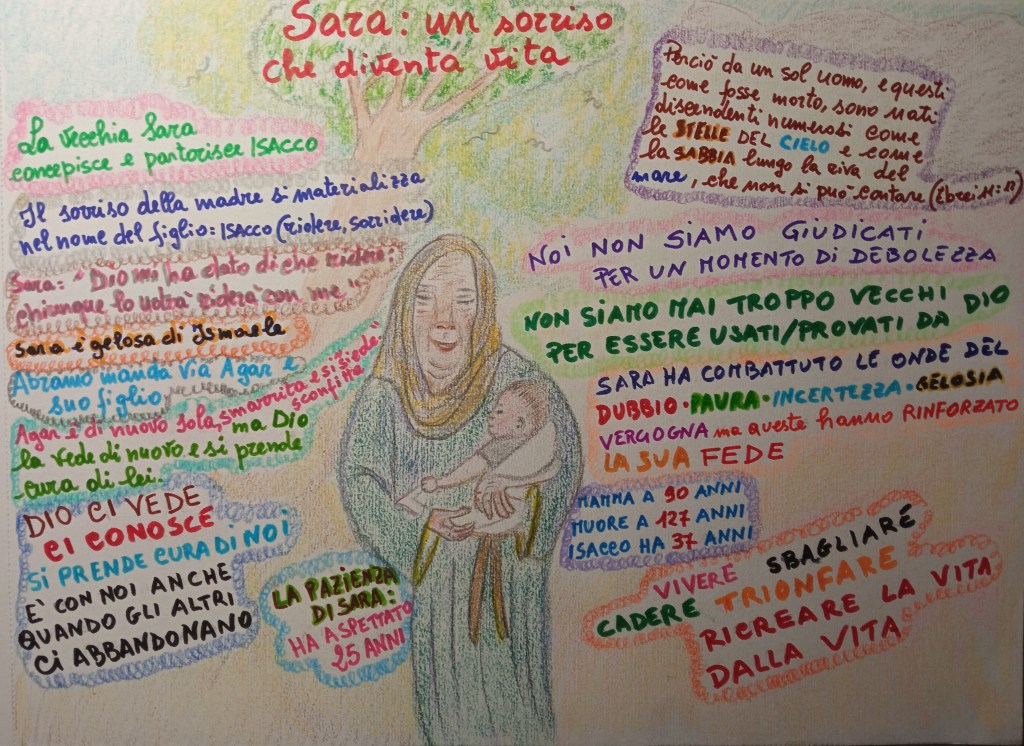 Sara: un sorriso
che diventa vita
La vecchia Sara
concepisce e partorisce ISACCO
Il sorriso della madre si materializza
nel nome del figlio: ISACCO (ridere, sorridere)
Sara: "Dio mi ha dato di che ridere:
chiunque lo udrà riderà con me"
Sara è gelosa di Ismaele
Abramo manda via Agar e
suo figlio
Agar è di nuovo sola, smarrita e si siede"
sconfitta
ma DIO
la vede di nuovo e si prende
cura di lei.
DIO CI VEDE
CI CONOSCE
SI PRENDE CURA DI NOI
E' CON NOI ANCHE
QUANDO GLI ALTRI
CI ABBANDONANO
LA PAZIENZA
DI SARA:
HA ASPETTATO
25 ANNI
Perciò da un sol uomo, e questi
come fosse morto, sono nati
discendenti numerosi come
le STELLE DEL CIELO e come
la SABBIA lungo la riva del
mare, che non si può contare (Ebrei 11:12)
NOI NON SIAMO GIUDICATI
PER UN MOMENTO DI DEBOLEZZA
NON SIAMO MAI TROPPO VECCHI
PER ESSERE USATI/PROVATI DA DIO
SARA HA COMBATTUTO LE ONDE DEL
DUBBIO·PAURA·INCERTEZZA·GELOSIA
VERGOGNA ma queste hanno RINFORZATO
LA SUA FEDE
MAMMA A 90 ANNI
MUORE A 127 ANNI
ISACCO HA 37 ANNI
VIVERE SBAGLIARE
CADERE TRIONFARE
RICREARE LA VITA
DALLA VITA